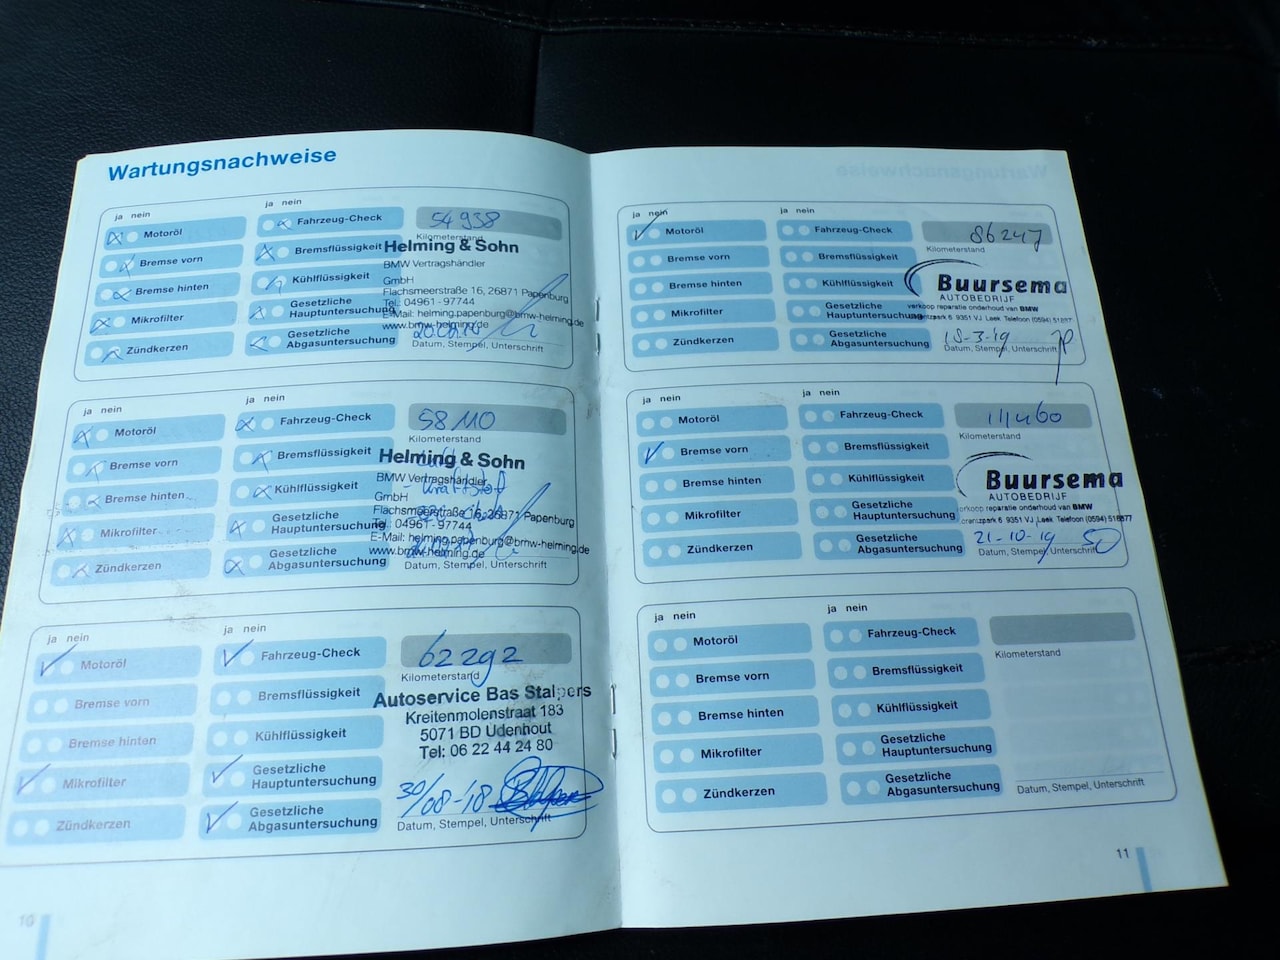 Wartungsnachweise
ja nein
ja nein
Motoröl
Fahrzeug-Check
54 938
Bremse vorn
Bremsflüssigkeit
Kilometerstand
Bremse hinten
Kühlflüssigkeit
Mikrofilter
Gesetzliche
Hauptuntersuchung
Zündkerzen
Gesetzliche
Abgasuntersuchung
Helming & Sohn
BMW Vertragshändler
GmbH
Flachsmeerstraße 16, 26871 Papenburg
Tel.: 04961 - 97744
E-Mail: helming.papenburg@bmw-helming.de
www.bmw-helming.de
Datum, Stempel, Unterschrift
ja nein
ja nein
Motoröl
Fahrzeug-Check
58 110
Bremse vorn
Bremsflüssigkeit
Kilometerstand
Bremse hinten
Kühlflüssigkeit
Mikrofilter
Gesetzliche
Hauptuntersuchung
Zündkerzen
Gesetzliche
Abgasuntersuchung
Helming & Sohn
BMW Vertragshändler
Kraftstoff
GmbH
Flachsmeerstraße 16, 26871 Papenburg
Tel.: 04961 - 97744
E-Mail: helming.papenburg@bmw-helming.de
www.bmw-helming.de
Datum, Stempel, Unterschrift
ja nein
ja nein
Motoröl
Fahrzeug-Check
62 292
Bremse vorn
Bremsflüssigkeit
Kilometerstand
Bremse hinten
Kühlflüssigkeit
Mikrofilter
Gesetzliche
Hauptuntersuchung
Zündkerzen
Gesetzliche
Abgasuntersuchung
Autoservice Bas Stalpers
Kreitenmolenstraat 183
5071 BD Udenhout
Tel: 06 22 44 24 80
30/08-'18
Datum, Stempel, Unterschrift
10
ja nein
ja nein
Motoröl
Fahrzeug-Check
86247
Bremse vorn
Bremsflüssigkeit
Kilometerstand
Bremse hinten
Kühlflüssigkeit
Mikrofilter
Gesetzliche
Hauptuntersuchung
Zündkerzen
Gesetzliche
Abgasuntersuchung
Buursema
AUTOBEDRIJF
verkoop reparatie onderhoud van BMW
9351 VJ Leek Telefoon (0594) 516877
18-3-19
Datum, Stempel, Unterschrift
ja nein
ja nein
Motoröl
Fahrzeug-Check
111460
Bremse vorn
Bremsflüssigkeit
Kilometerstand
Bremse hinten
Kühlflüssigkeit
Mikrofilter
Gesetzliche
Hauptuntersuchung
Zündkerzen
Gesetzliche
Abgasuntersuchung
Buursema
AUTOBEDRIJF
reparatie onderhoud van BMW
6 9351 VJ Leek Telefoon (0594) 516877
21-10-19
Datum, Stempel, Unterschrift
ja nein
ja nein
Motoröl
Fahrzeug-Check
Bremse vorn
Bremsflüssigkeit
Kilometerstand
Bremse hinten
Kühlflüssigkeit
Mikrofilter
Gesetzliche
Hauptuntersuchung
Zündkerzen
Gesetzliche
Abgasuntersuchung
Datum, Stempel, Unterschrift
11